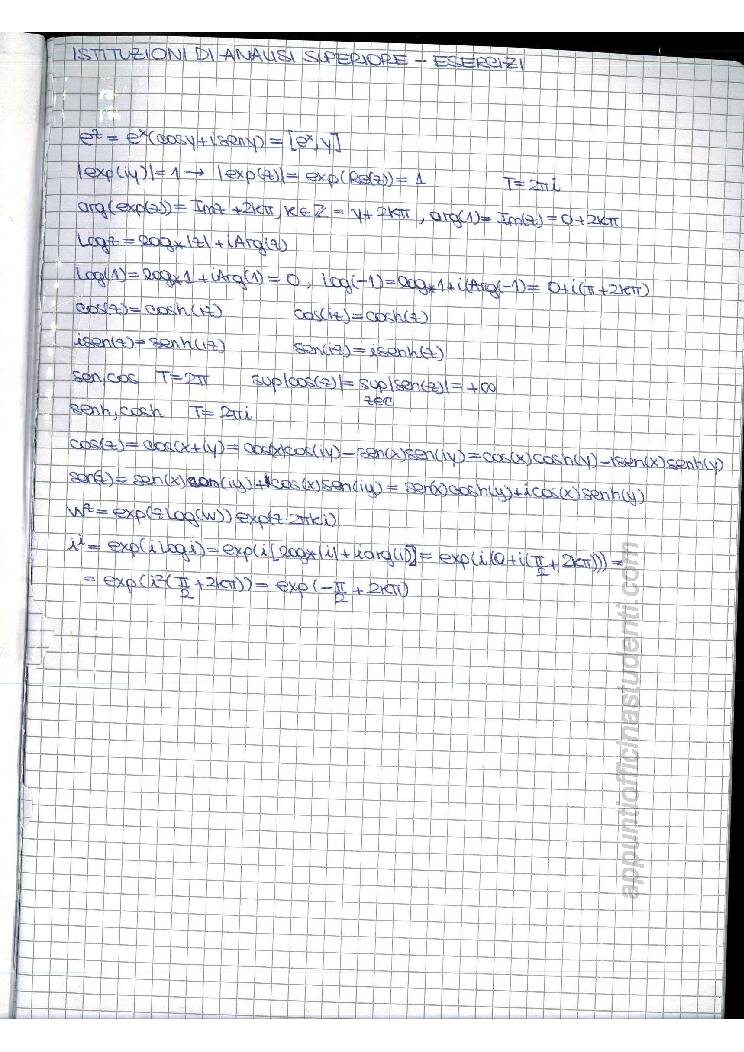 ISTITUZIONI DI ANALISI SUPERIORE - ESERCIZI
e^z = e^x(cosy+iseny) = [e^x, y]
|exp(iy)|=1 → |exp(z)|= exp(Re(z)) = 1 T=2πi
arg(exp(z)) = Imz +2kπ, k∈Z = y+2kπ, arg(1)= Im(z) = 0+2kπ
Logz = log_*|z| + iArg(z)
Log(1) = log_*1 + iArg(1) = 0, Log(-1)=log_*1+i(Arg(-1)= 0+i(π+2kπ)
cos(z) = cosh(iz) cos(iz)=cosh(z)
isen(z) = senh(iz) sen(iz)= isenh(z)
sen, cos T=2π sup|cos(z)|= sup|sen(z)|= +∞
z∈C
senh, cosh T= 2πi
cos(z) = cos(x+iy) = cos(x)cos(iy) - sen(x)sen(iy) = cos(x)cosh(y) - isen(x)senh(y)
sen(z) = sen(x)cos(iy)+cos(x)sen(iy) = sen(x)cosh(y)+icos(x)senh(y)
w^z = exp(zlog(w)) exp(z 2πki)
i^i = exp(ilogi) = exp(i[log_*|i|+iarg(i)] = exp(i(0+i(π/2+2kπ))) =
= exp(i²(π/2+2kπ)) = exp(-π/2+2kπ)
appuntiofficinastudenti.com